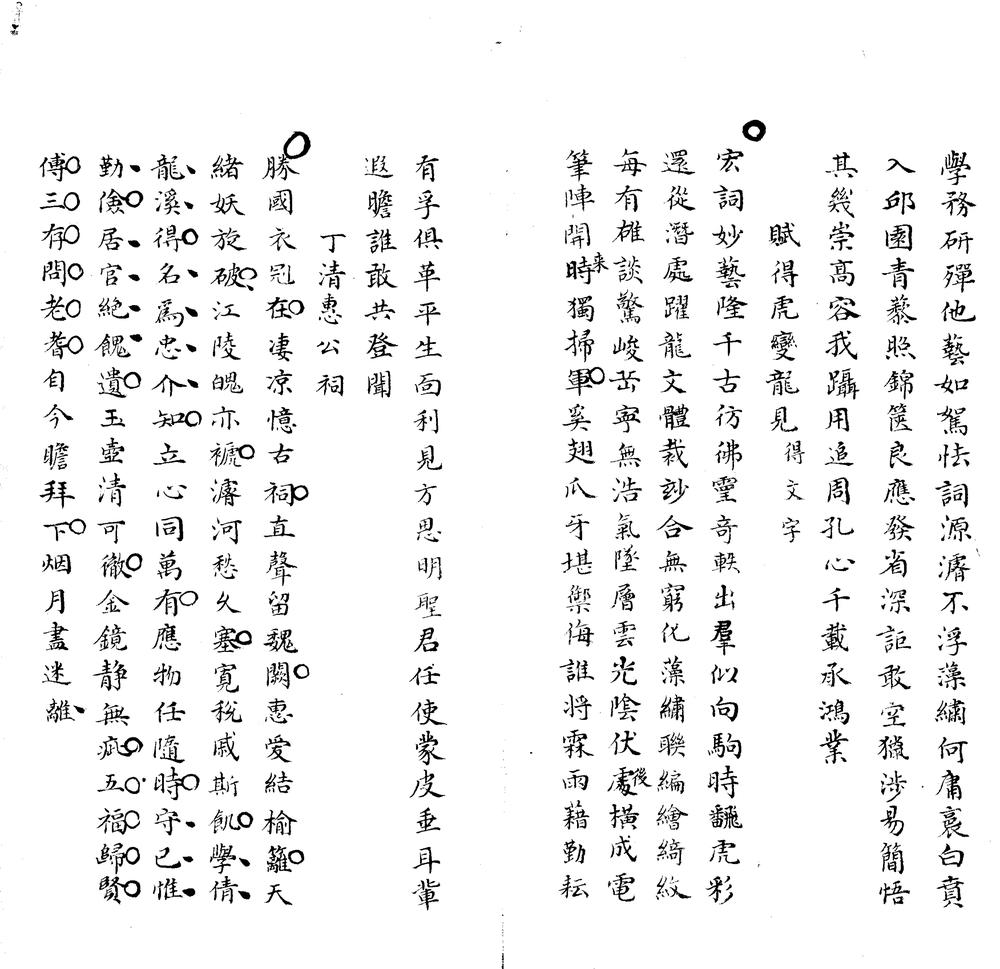 學務研殫他藝如駑怯詞源濬不浮藻繡何庸裒白賁
入邱園青藜照錦篋良應發省深詎敢空獵涉易簡悟
其幾崇高容我躡用追周孔心千載承鴻業
賦得虎變龍見得文字
宏詞妙藝隆千古彷彿靈奇軼出羣似向駒時飜虎彩
還從潛處躍龍文體裁訬合無窮化藻繡聯編繪綺紋
每有雄談驚峻岳寧無浩氣墜層雲光陰伏處後橫成電
筆陣開時来獨掃軍奚翅爪牙堪禦侮誰將霖雨藉勤耘
有孚俱革平生面利見方思明聖君任使蒙皮垂耳輩
遐瞻誰敢共登聞
丁清惠公祠
勝國衣冠在凄凉憶古祠直聲留魏闕惠愛結榆籬天
緒妖旋破江陵魄亦褫濬河愁久塞寬稅戚斯飢學倩
龍溪得名爲忠介知立心同萬有應物任隨時守已惟
勤儉居官絕餽遺玉壺清可徹金鏡静無疵五福歸賢
傅三存問老耆自今瞻拜下烟月盡迷離